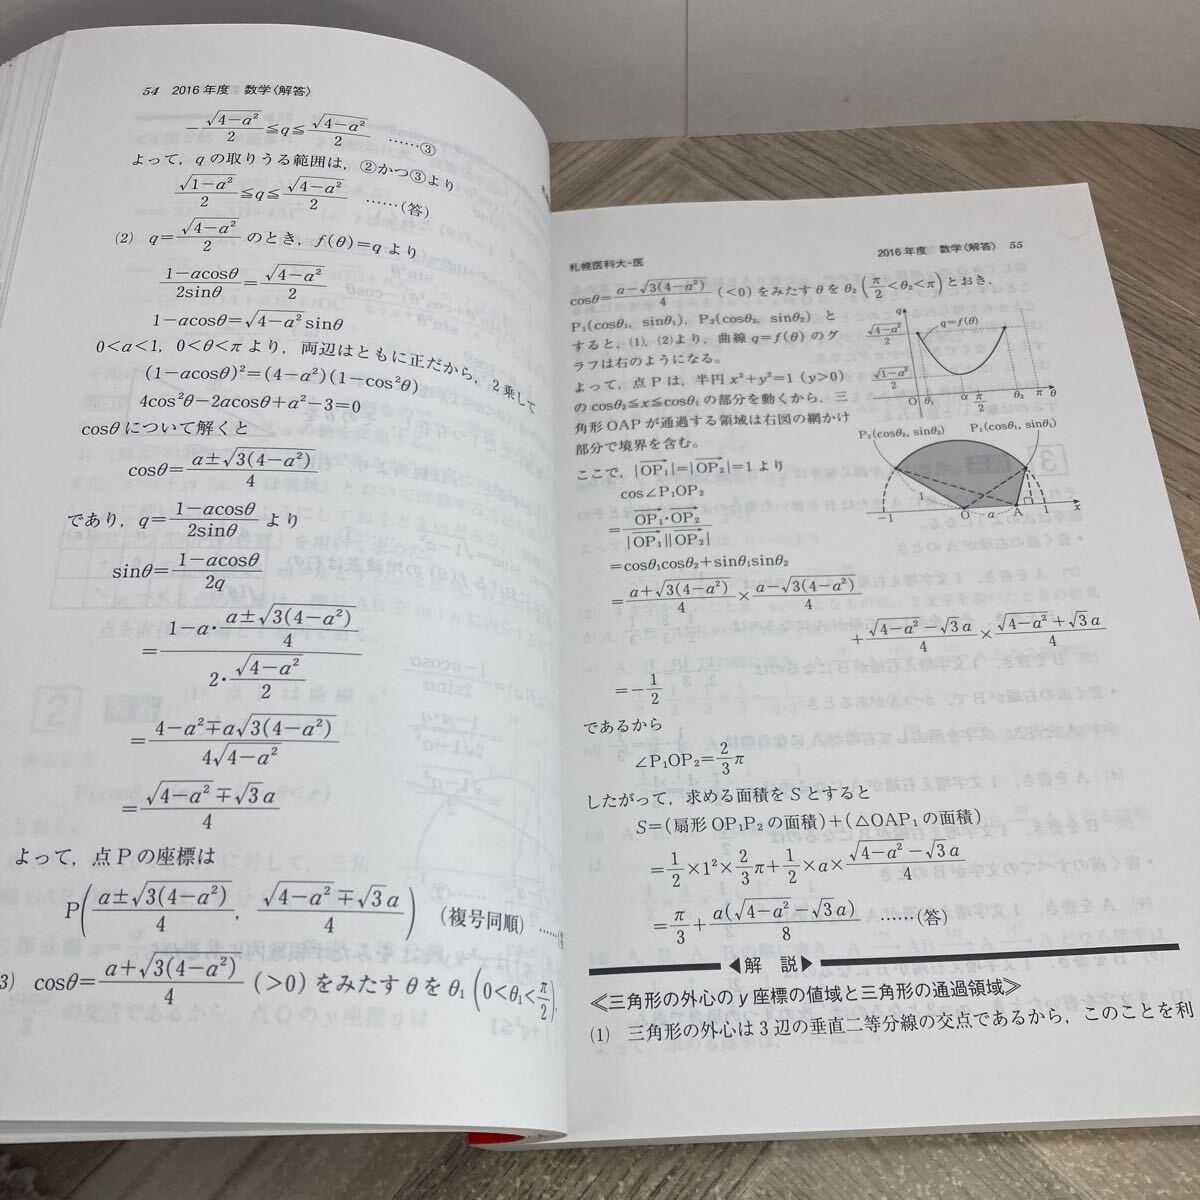 54 2016年度 数学〈解答〉
−√(4−a²)/2 ≦q≦ √(4−a²)/2 ……③
よって，qの取りうる範囲は，②かつ③より
√(1−a²)/2 ≦q≦ √(4−a²)/2 ……(答)
(2) q=√(4−a²)/2 のとき，f(θ)=q より
(1−acosθ)/(2sinθ)=√(4−a²)/2
1−acosθ=√(4−a²)sinθ
0<a<1，0<θ<π より，両辺はともに正だから，2乗して
(1−acosθ)²=(4−a²)(1−cos²θ)
4cos²θ−2acosθ+a²−3=0
cosθについて解くと
cosθ=(a±√(3(4−a²)))/4
であり，q=(1−acosθ)/(2sinθ) より
sinθ=(1−acosθ)/(2q)
=(1−a·(a±√(3(4−a²)))/4)/(2·√(4−a²)/2)
=(4−a²∓a√(3(4−a²)))/(4√(4−a²))
=(√(4−a²)∓√3a)/4
よって，点Pの座標は
P((a±√(3(4−a²)))/4，(√(4−a²)∓√3a)/4) (複号同順) ……
3) cosθ=(a+√(3(4−a²)))/4 (>0)をみたすθをθ₁(0<θ₁<π/2),
札幌医科大-医
2016年度 数学〈解答〉 55
cosθ=(a−√(3(4−a²)))/4 (<0)をみたすθをθ₂(π/2<θ₂<π)とおき，
P₁(cosθ₁，sinθ₁)，P₂(cosθ₂，sinθ₂)と
すると，(1)，(2)より，曲線q=f(θ)のグ
ラフは右のようになる。
よって，点Pは，半円x²+y²=1 (y>0)
のcosθ₂≦x≦cosθ₁の部分を動くから，三
角形OAPが通過する領域は右図の網かけ
部分で境界を含む。
q
q=f(θ)
√(4−a²)/2
√(1−a²)/2
O θ₁ α π/2 θ₂ π θ
P₂(cosθ₂, sinθ₂)
P₁(cosθ₁, sinθ₁)
1
−1 O a A 1 x
ここで，|OP₁|=|OP₂|=1より
cos∠P₁OP₂
=(OP₁·OP₂)/(|OP₁||OP₂|)
=cosθ₁cosθ₂+sinθ₁sinθ₂
=(a+√(3(4−a²)))/4×(a−√(3(4−a²)))/4
+(√(4−a²)−√3a)/4×(√(4−a²)+√3a)/4
=−1/2
であるから
∠P₁OP₂=2/3π
したがって，求める面積をSとすると
S=(扇形OP₁P₂の面積)+(△OAP₁の面積)
=1/2×1²×2/3π+1/2×a×(√(4−a²)−√3a)/4
=π/3+a(√(4−a²)−√3a)/8 ……(答)
◀解 説▶
≪三角形の外心のy座標の値域と三角形の通過領域≫
(1) 三角形の外心は3辺の垂直二等分線の交点であるから，このことを利